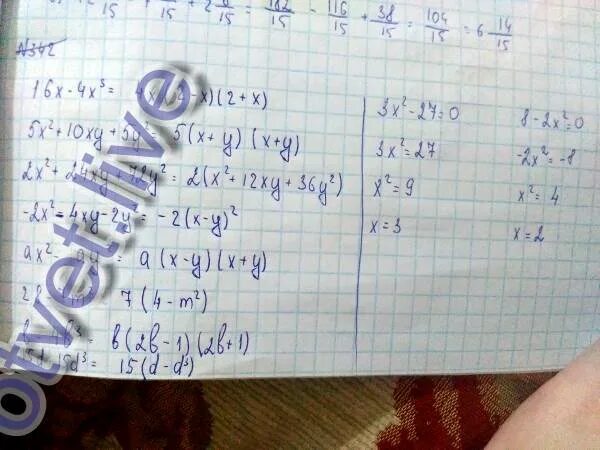 15 15 + 2 8/15 = 182/15 - 116/15 + 38/15 = 104/15 = 6 14/15
N342
16x - 4x³ = 4x(2-x)(2+x)
5x² + 10xy + 5y² = 5(x+y)(x+y)
2x² + 24xy + 72y² = 2(x² + 12xy + 36y²)
-2x² = 4xy - 2y² = -2(x-y)²
ax² - ay² = a(x-y)(x+y)
7(4 - m²)
= b(2b-1)(2b+1)
15d³ = 15(d - d³)
3x² - 27 = 0
3x² = 27
x² = 9
x = 3
8 - 2x² = 0
-2x² = -8
x² = 4
x = 2
otvet.live